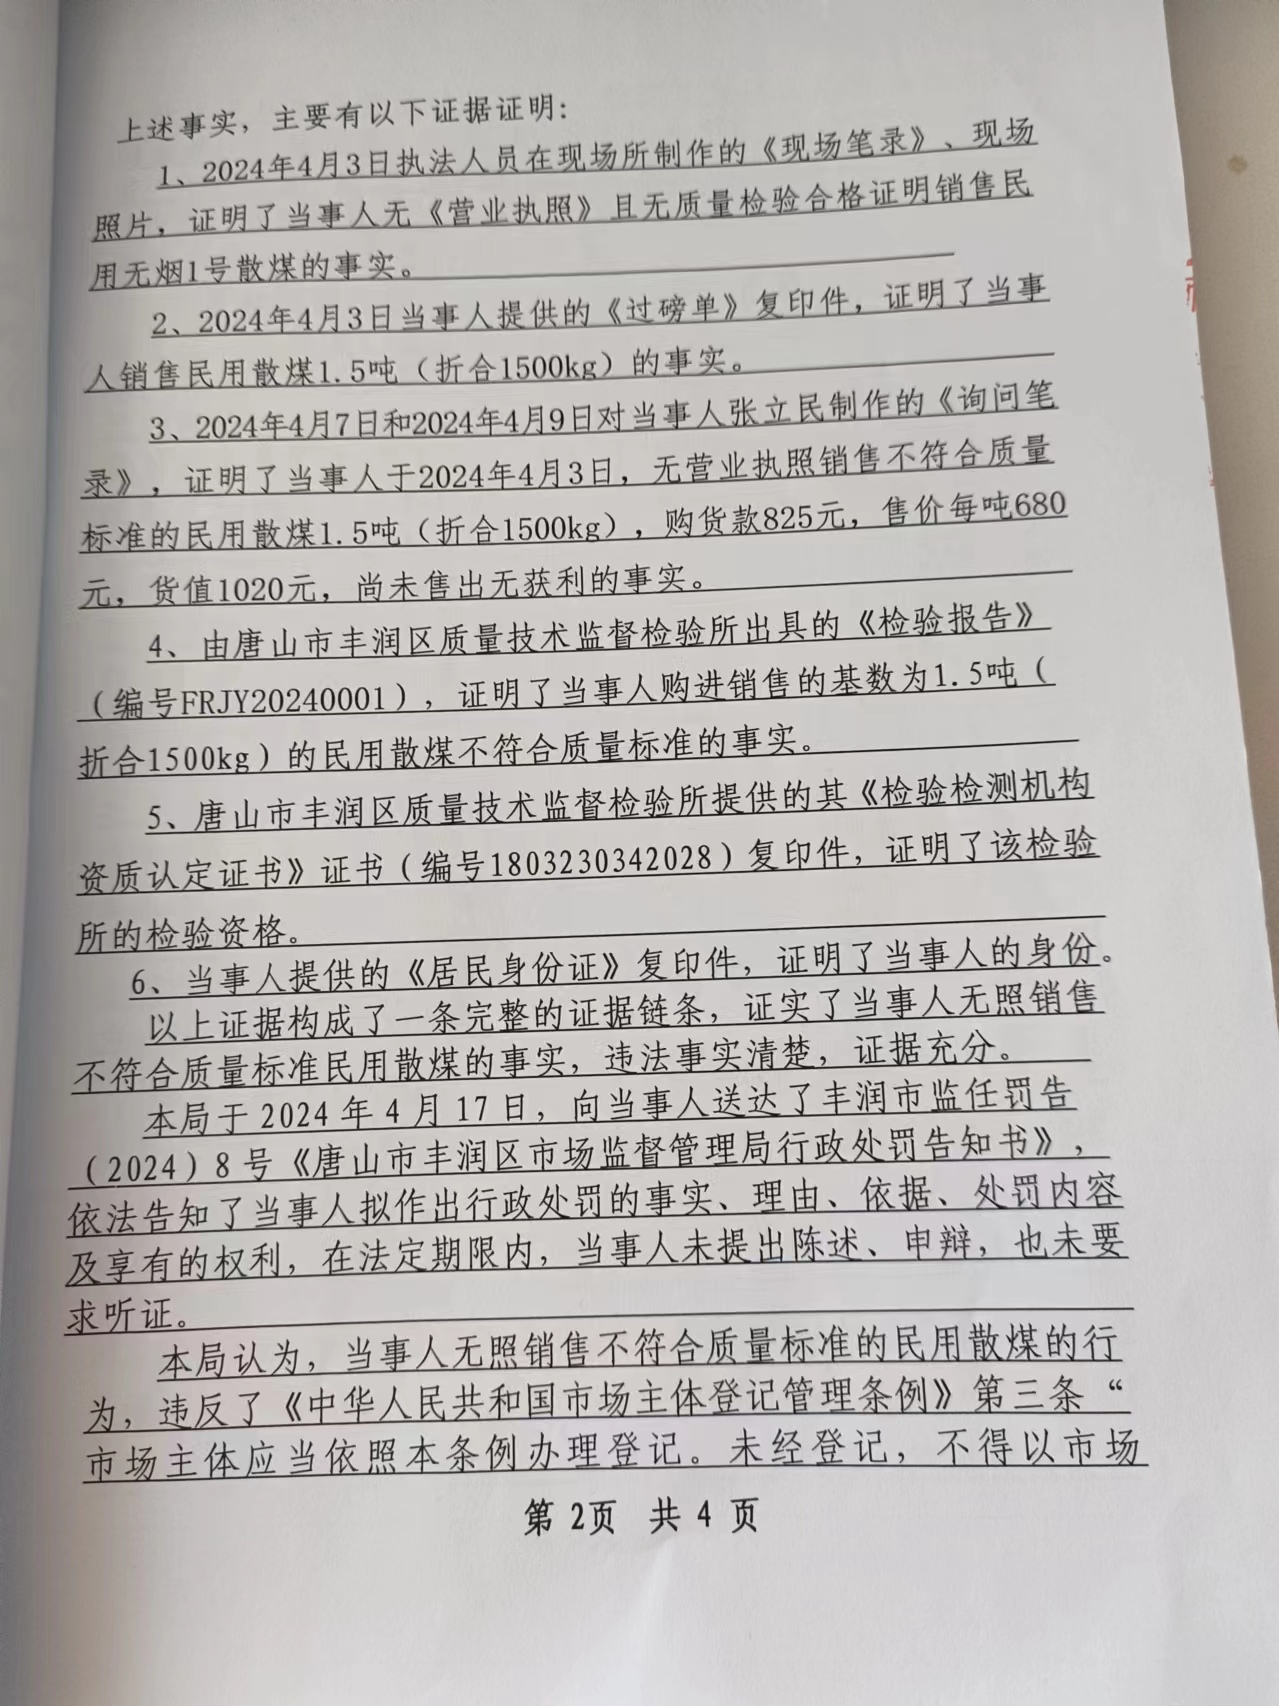 上述事实，主要有以下证据证明：
1、2024年4月3日执法人员在现场所制作的《现场笔录》、现场
照片，证明了当事人无《营业执照》且无质量检验合格证明销售民
用无烟1号散煤的事实。
2、2024年4月3日当事人提供的《过磅单》复印件，证明了当事
人销售民用散煤1.5吨（折合1500kg）的事实。
3、2024年4月7日和2024年4月9日对当事人张立民制作的《询问笔
录》，证明了当事人于2024年4月3日，无营业执照销售不符合质量
标准的民用散煤1.5吨（折合1500kg），购货款825元，售价每吨680
元，货值1020元，尚未售出无获利的事实。
4、由唐山市丰润区质量技术监督检验所出具的《检验报告》
（编号FRJY20240001），证明了当事人购进销售的基数为1.5吨（
折合1500kg）的民用散煤不符合质量标准的事实。
5、唐山市丰润区质量技术监督检验所提供的其《检验检测机构
资质认定证书》证书（编号1803230342028）复印件，证明了该检验
所的检验资格。
6、当事人提供的《居民身份证》复印件，证明了当事人的身份。
以上证据构成了一条完整的证据链条，证实了当事人无照销售
不符合质量标准民用散煤的事实，违法事实清楚，证据充分。
本局于2024年4月17日，向当事人送达了丰润市监任罚告
（2024）8号《唐山市丰润区市场监督管理局行政处罚告知书》，
依法告知了当事人拟作出行政处罚的事实、理由、依据、处罚内容
及享有的权利，在法定期限内，当事人未提出陈述、申辩，也未要
求听证。
本局认为，当事人无照销售不符合质量标准的民用散煤的行
为，违反了《中华人民共和国市场主体登记管理条例》第三条“
市场主体应当依照本条例办理登记。未经登记，不得以市场
第2页 共4页